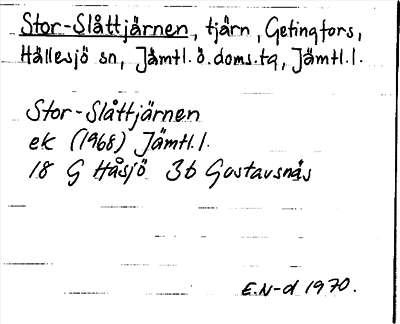 Stor-Slåttjärnen, tjärn, Getingfors,
Hällesjö sn, Jämtl. ö. doms. tg, Jämtl. l.
Stor-Slåttjärnen
ek (1968) Jämtl. l.
18 G Håsjö 3b Gustavsnäs
E.N-d 1970.